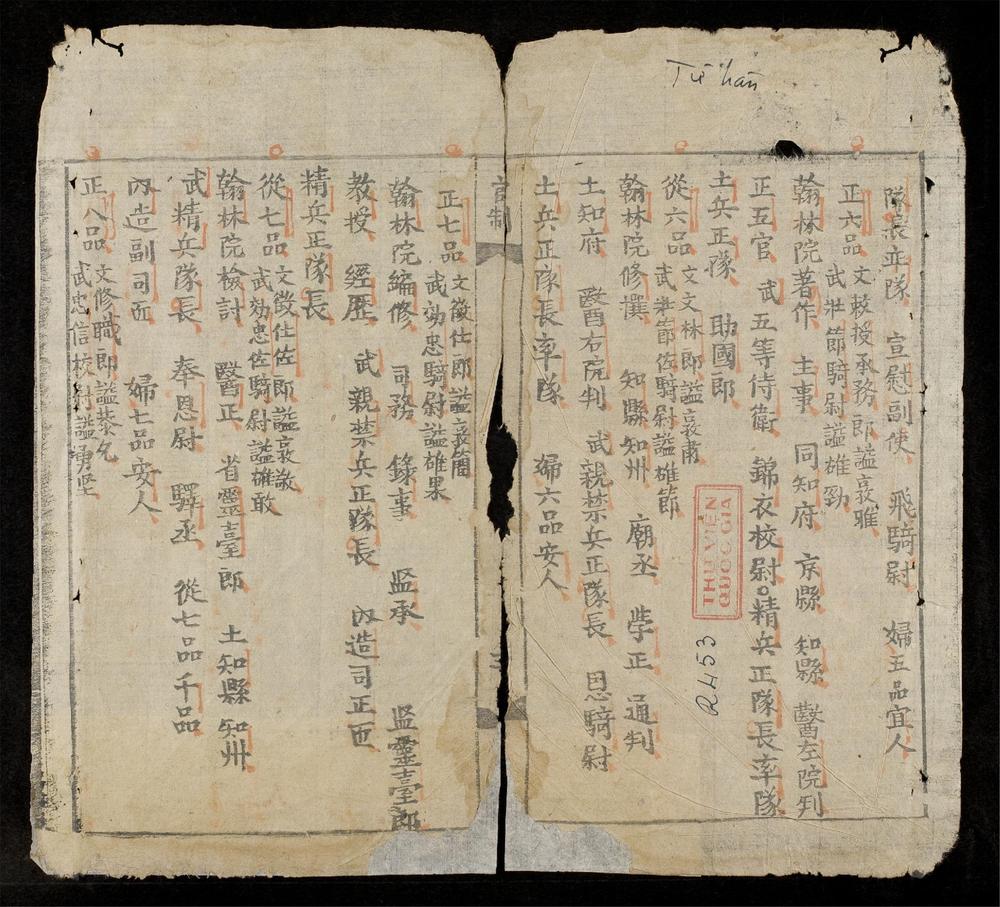 Từ hàn
隊長並隊 宣慰副使 飛騎尉 婦五品宜人
正六品 文敕授承務郎謚敦雅
武壯節騎尉謚雄勁
翰林院著作 主事 同知府 京縣 知縣 醫左院判
正五官 武 五等侍衛 錦衣校尉○精兵正隊長率隊
土兵正隊 助國郎
從六品 文文林郎謚敦肅
武壯節佐騎尉謚雄節
翰林院修撰 知縣知州 廟丞 學正 通判
土知府 醫右院判 武親禁兵正隊長 恩騎尉
土兵正隊長率隊 婦六品安人
THƯ VIỆN
QUỐC GIA
R.453
官制
正七品 文徵仕郎謚敦簡
武効忠騎尉謚雄果
翰林院編修 司務 錄事 監承 監靈臺郎
教授 經歷 武親禁兵正隊長 內造司正匠
精兵正隊長
從七品 文徵仕佐郎謚敦
武効忠佐騎尉謚雄敢
翰林院檢討 醫正 省靈臺郎 土知縣知州
武精兵隊長 奉恩尉 驛丞 從七品千品
內造副司匠 婦七品安人
正八品 文修職郎謚恭
武忠信校尉謚勇堅